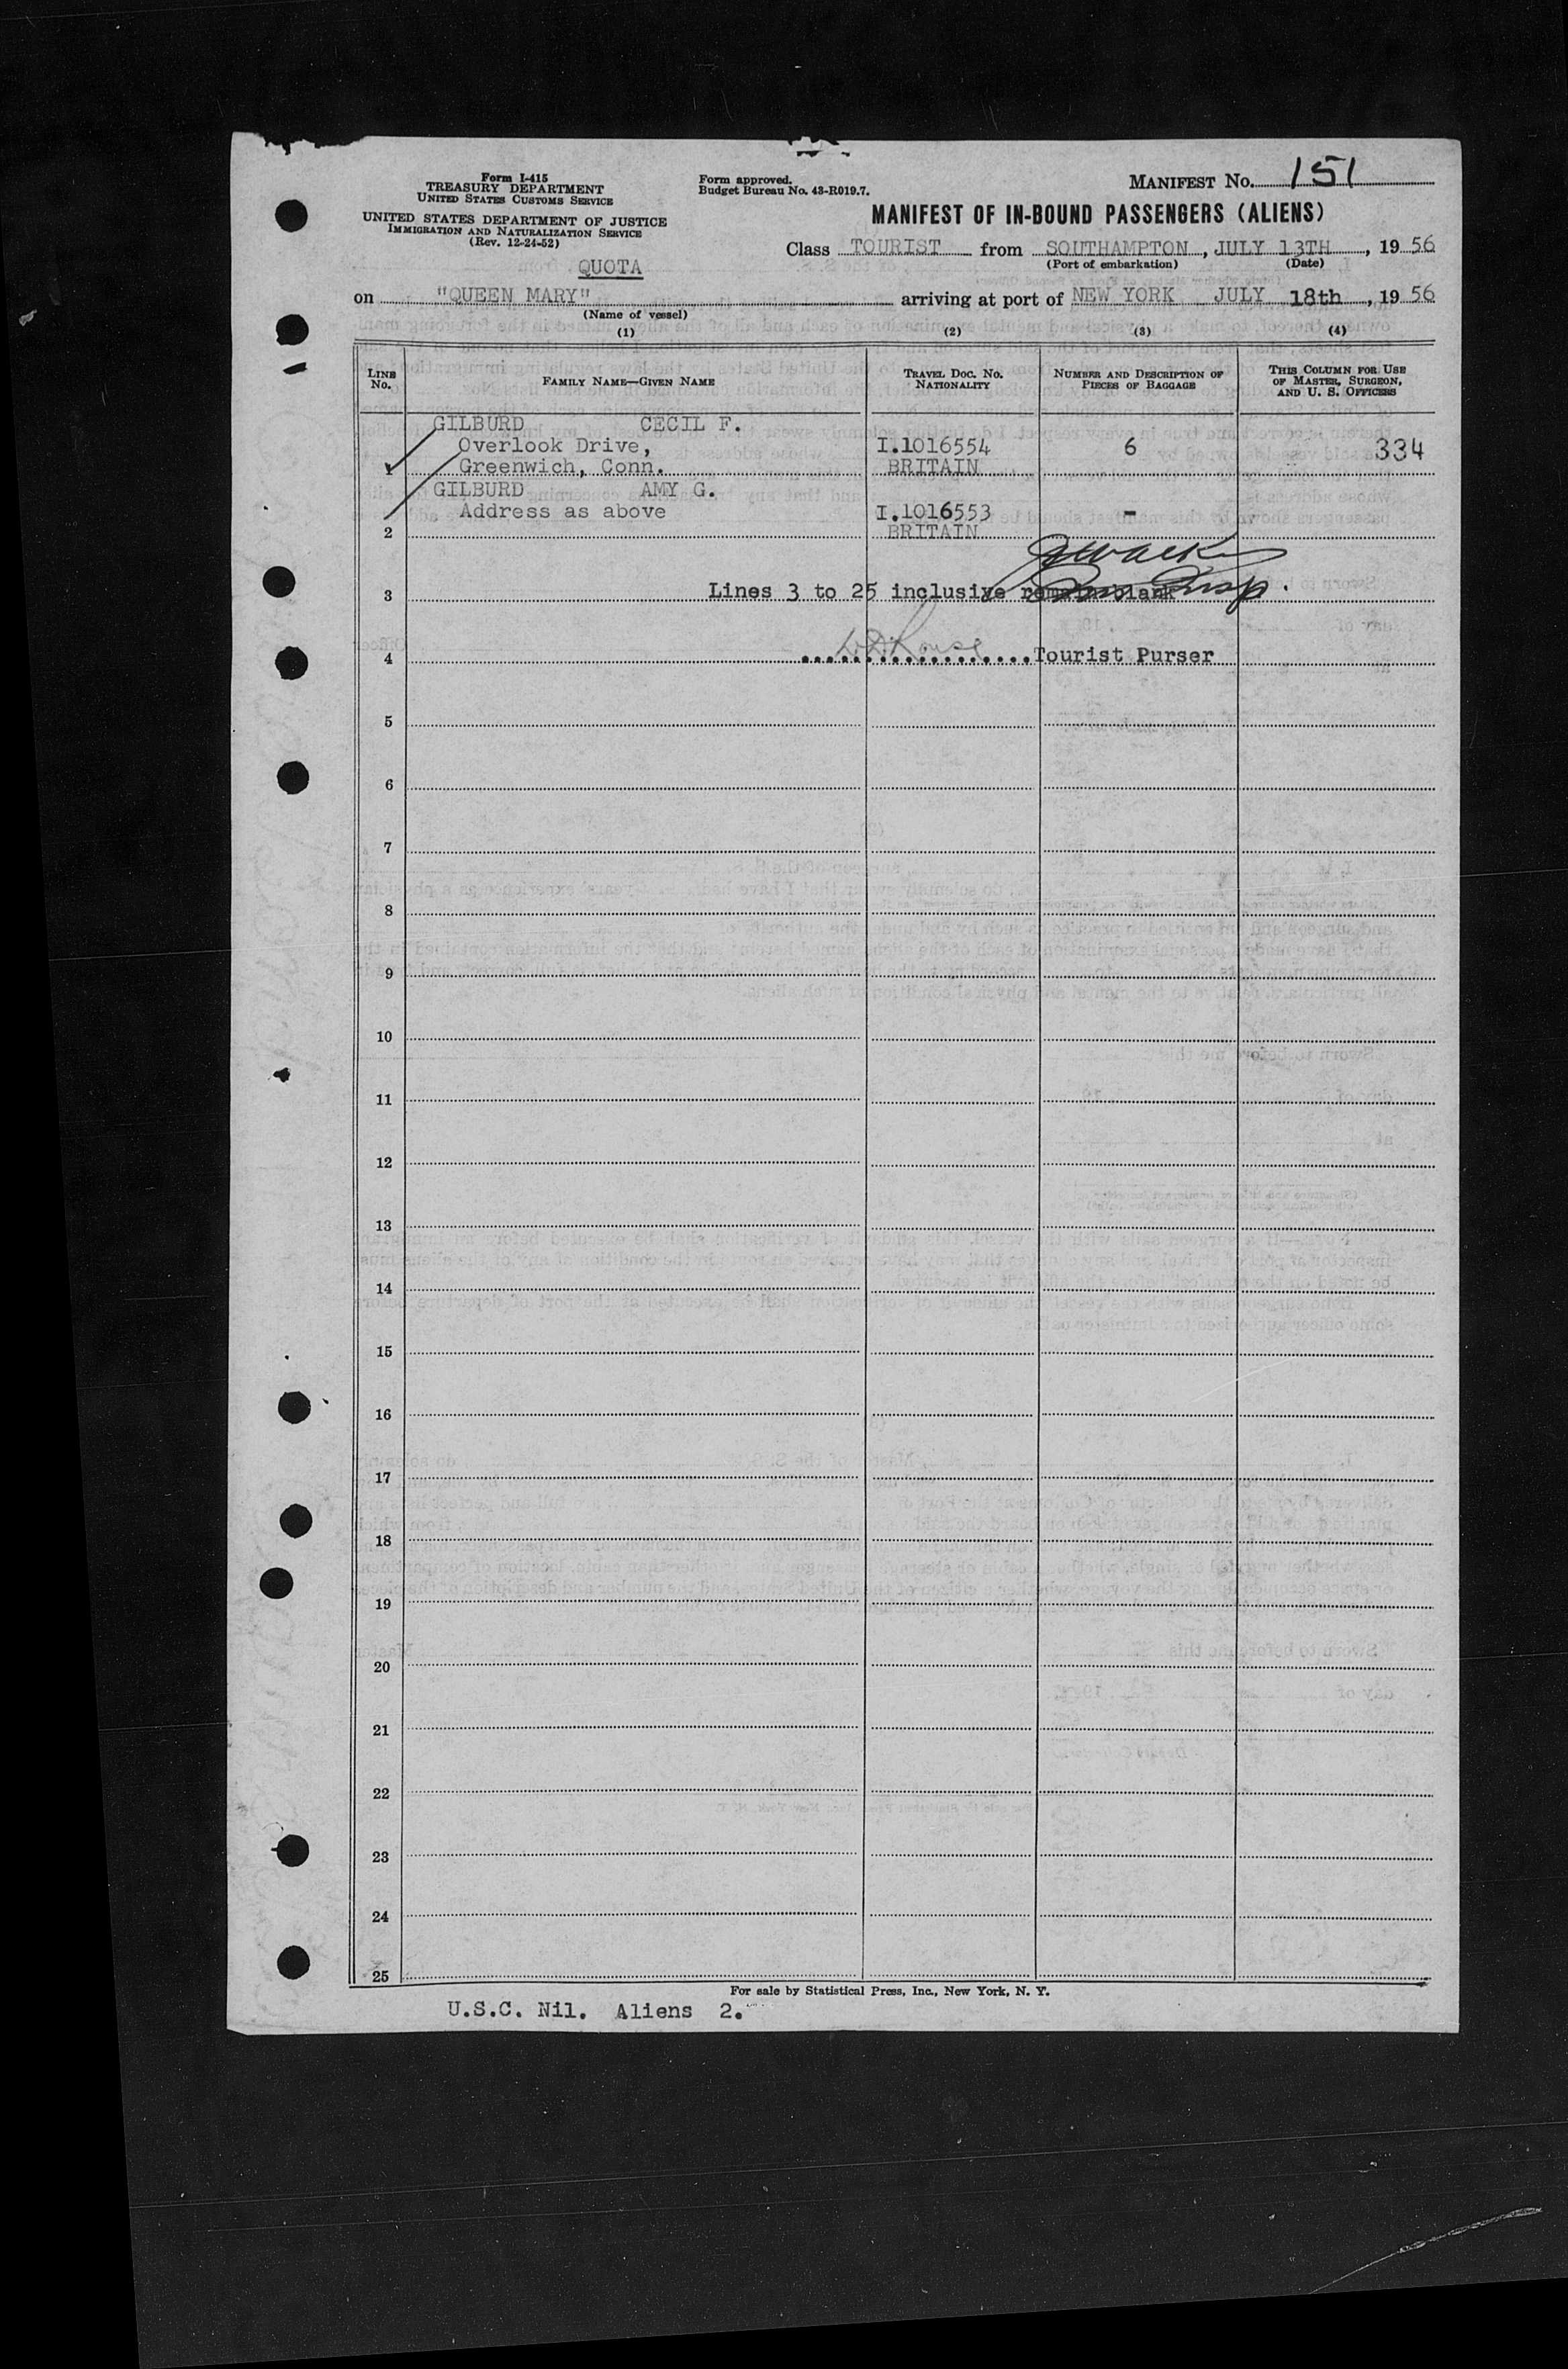 Form I-415
TREASURY DEPARTMENT
UNITED STATES CUSTOMS SERVICE
UNITED STATES DEPARTMENT OF JUSTICE
IMMIGRATION AND NATURALIZATION SERVICE
(Rev. 12-24-52)
Form approved.
Budget Bureau No. 43-R019.7.
MANIFEST No. 151
MANIFEST OF IN-BOUND PASSENGERS (ALIENS)
Class TOURIST from SOUTHAMPTON, JULY 13TH, 19 56
(Port of embarkation) (Date)
QUOTA
on "QUEEN MARY" arriving at port of NEW YORK JULY 18th, 19 56
(Name of vessel)
(1) (2) (3) (4)
LINE No. FAMILY NAME—GIVEN NAME TRAVEL DOC. No. NATIONALITY NUMBER AND DESCRIPTION OF PIECES OF BAGGAGE THIS COLUMN FOR USE OF MASTER, SURGEON, AND U. S. OFFICERS
GILBURD CECIL F.
Overlook Drive, I.1016554 6 334
1 Greenwich, Conn. BRITAIN
GILBURD AMY G.
Address as above I.1016553 -
2 BRITAIN
3 Lines 3 to 25 inclusive remain blank
4 Tourist Purser
5
6
7
8
9
10
11
12
13
14
15
16
17
18
19
20
21
22
23
24
25
For sale by Statistical Press, Inc., New York, N. Y.
U.S.C. Nil. Aliens 2.